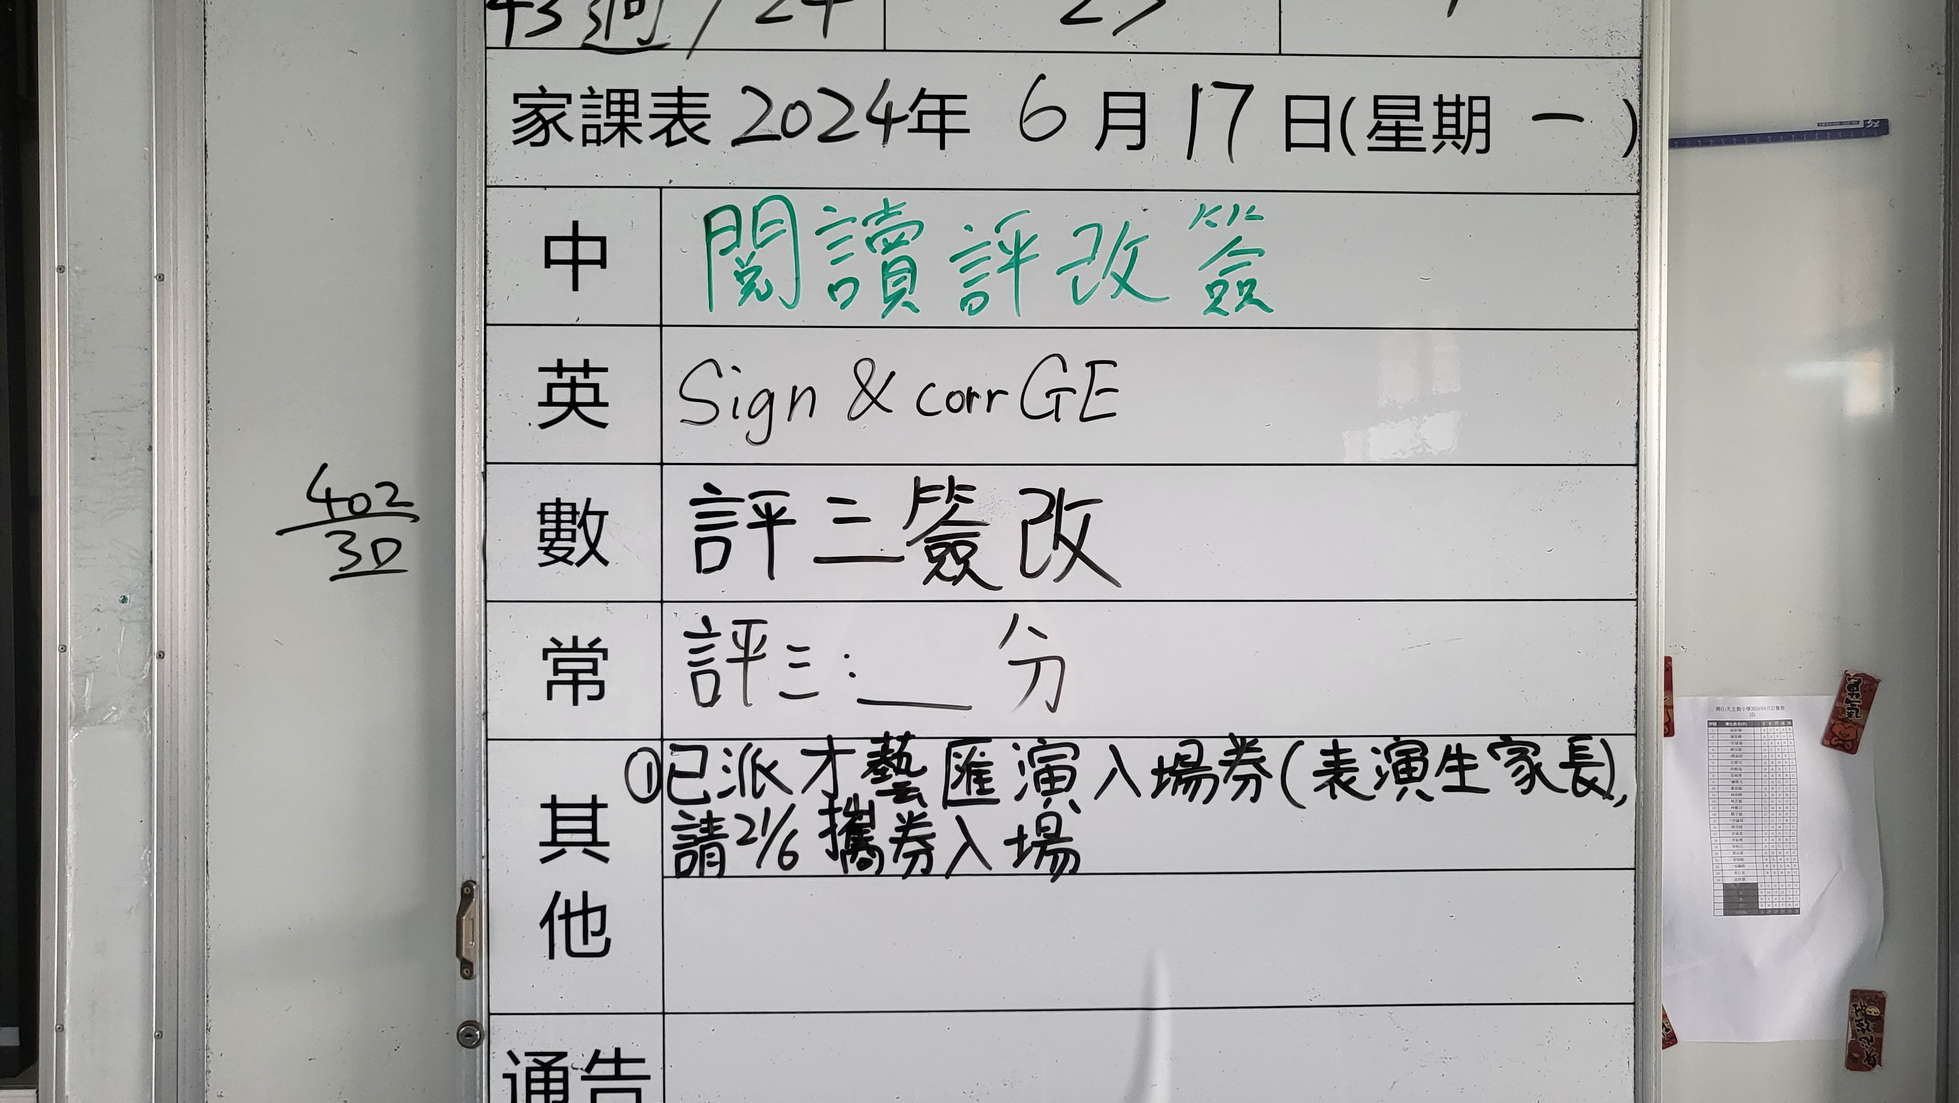 家課表 2024年 6月17日(星期一)
中 閱讀評改簽
英 Sign & corr GE
數 評三簽改
402
3D
常 評三:__分
其他 ①已派才藝匯演入場券(表演生家長),
請21/6攜券入場
通告